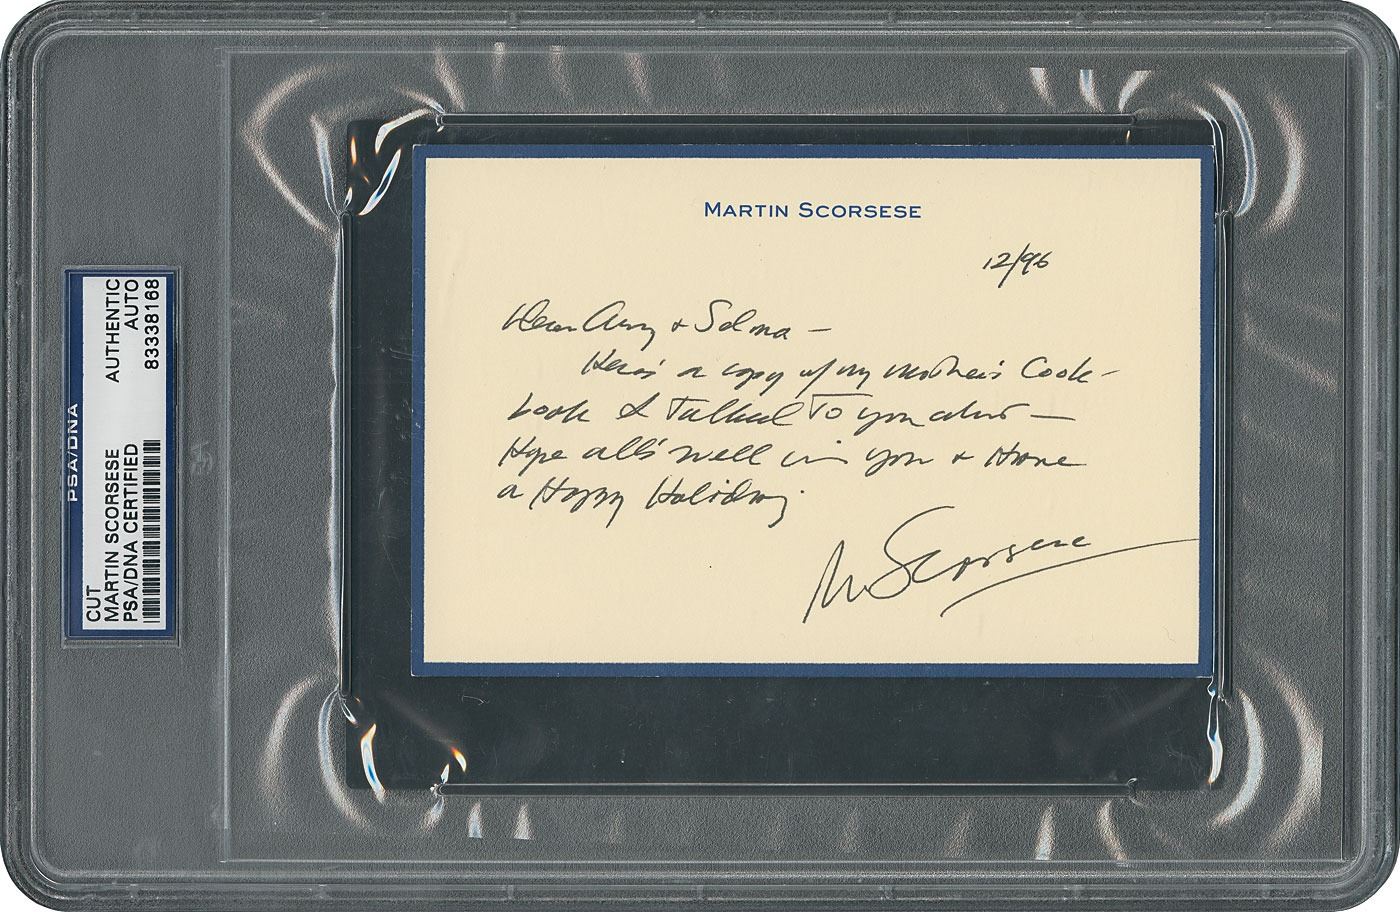 PSA/DNA
CUT
MARTIN SCORSESE
PSA/DNA CERTIFIED
AUTHENTIC
AUTO
83338168
MARTIN SCORSESE
12/96
Dear Amy & Selma –
Here's a copy of my mother's Cook-
book I Talked To you about –
Hope all's well with you & Have
a Happy Holiday.
M Scorsese